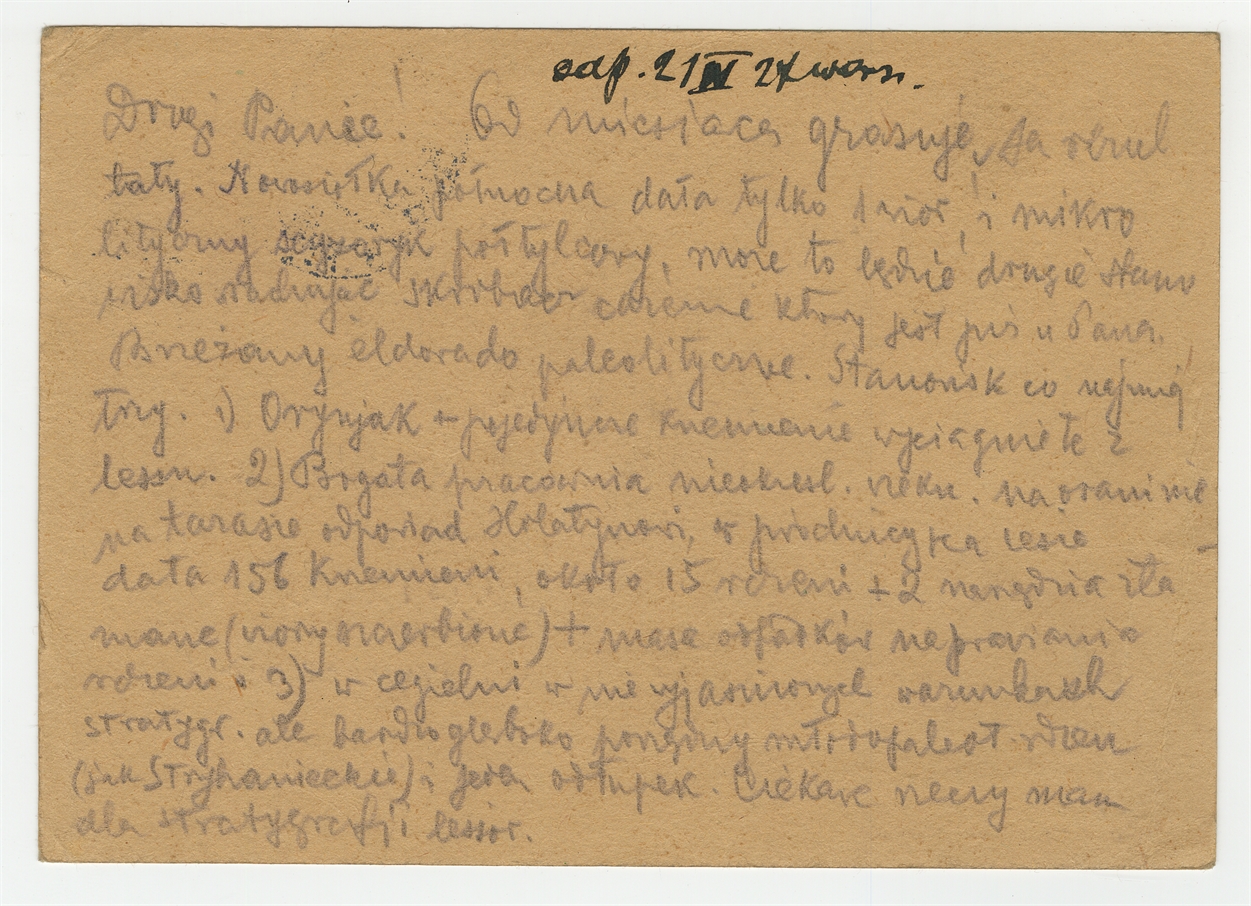 odp. 21 IV 27 wars.
Drogi Panie! Od miesiąca grasuję, są rezul
taty. Nowosiółka północna dała tylko 1 wiór i mikro
lityczny scyzoryk półtylcowy, może to będzie drugie stano
wisko radiując skrobacz który jest już u Pana.
Brzeżany eldorado paleolityczne. Stanowisk co najmniej
trzy. 1) Oryniak + pojedyncze krzemienie wyciągnięte z
lessu. 2) Bogata pracownia nieokreśl. wieku. na
na tarasie odpowiad Hołatynowi, w lesie
dała 156 krzemieni, około 15 rdzeni + 2 narzędzia zła
mane (wióry szczerbione) + masa odpadków naprawiania
rdzeni i 3) w cegielni w niewyjaśnionych warunkach
stratygr. ale bardzo głęboko potężny młodopaleot. rdzeń
(jak Stryhanieckie) i jeden odłupek. Ciekawe rzeczy mam
dla stratygrafji lessów.